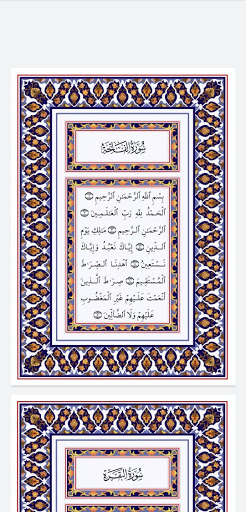 سُورَةُ الْفَاتِحَةِ
بِسْمِ اللَّهِ الرَّحْمَٰنِ الرَّحِيمِ ۝
الْحَمْدُ لِلَّهِ رَبِّ الْعَالَمِينَ ۝
الرَّحْمَٰنِ الرَّحِيمِ ۝ مَالِكِ يَوْمِ
الدِّينِ ۝ إِيَّاكَ نَعْبُدُ وَإِيَّاكَ
نَسْتَعِينُ ۝ اهْدِنَا الصِّرَاطَ
الْمُسْتَقِيمَ ۝ صِرَاطَ الَّذِينَ
أَنْعَمْتَ عَلَيْهِمْ غَيْرِ الْمَغْضُوبِ
عَلَيْهِمْ وَلَا الضَّالِّينَ ۝
سُورَةُ الْبَقَرَةِ